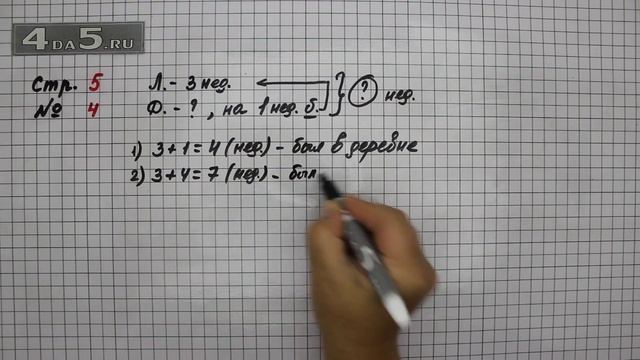 4DA5.RU
Стр. 5 Л. - 3 нед.
№ 4 Д. - ? , на 1 нед. б. ? нед.
1) 3 + 1 = 4 (нед.) - был в деревне
2) 3 + 4 = 7 (нед.) - был